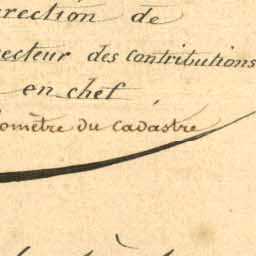 rection de
recteur des contributions
en chef
omètre du cadastre